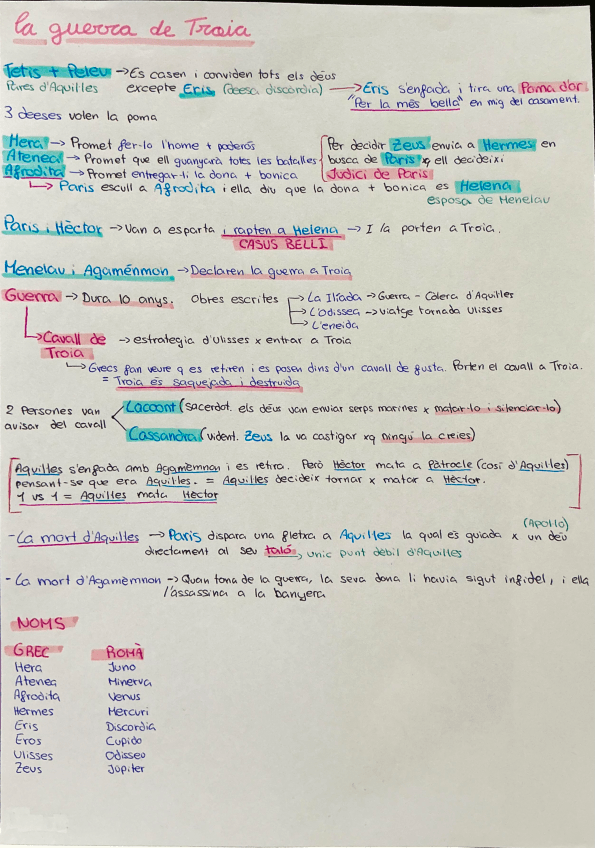 la guerra de Troia
Tetis + Peleu → Es casen i conviden tots els déus → Eris s'enfada i tira una Poma d'or
Pares d'Aquilles excepte Eris (deesa discordia) "Per la més bella" en mig del casament.
3 deeses volen la poma
Hera → Promet fer-lo l'home + poderós
Atenea → Promet que ell guanyarà totes les batalles
Afrodita → Promet entregar-li la dona + bonica
Per decidir Zeus envia a Hermes en
busca de Paris xq ell decideixi
Judici de Paris
→ Paris escull a Afrodita i ella diu que la dona + bonica es Helena
esposa de Menelau
Paris i Hèctor → Van a esparta i rapten a Helena → I la porten a Troia.
CASUS BELLI
Menelau i Agaménmon → Declaren la guerra a Troia
Guerra → Dura 10 anys. Obres escrites → La Ilíada → Guerra - Còlera d'Aquilles
→ L'odissea → viatge tornada Ulisses
→ L'eneida
→ Cavall de Troia → estrategia d'Ulisses x entrar a Troia
→ Grecs fan veure q es retiren i es posen dins d'un cavall de fusta. Porten el cavall a Troia.
= Troia és saquejada i destruida
2 Persones van
avisar del cavall
Lacoont (sacerdot. els déus van enviar serps marines x matar-lo i silenciar-lo)
Cassandra (vident. Zeus la va castigar xq ningú la creies)
Aquilles s'enfada amb Agamèmnon i es retira. Però Hèctor mata a Pàtrocle (cosí d'Aquilles)
pensant-se que era Aquilles. = Aquilles decideix tornar x matar a Hèctor.
1 vs 1 = Aquilles mata Hèctor
- La mort d'Aquilles → Paris dispara una fletxa a Aquilles la qual és guiada x un déu (Apol·lo)
directament al seu taló, unic punt dèbil d'Aquilles
- La mort d'Agamèmnon → Quan torna de la guerra, la seva dona li havia sigut infidel, i ella
l'assassina a la banyera
NOMS
GREC ROMÀ
Hera Juno
Atenea Minerva
Afrodita Venus
Hermes Mercuri
Eris Discordia
Eros Cupido
Ulisses Odisseo
Zeus Jupiter